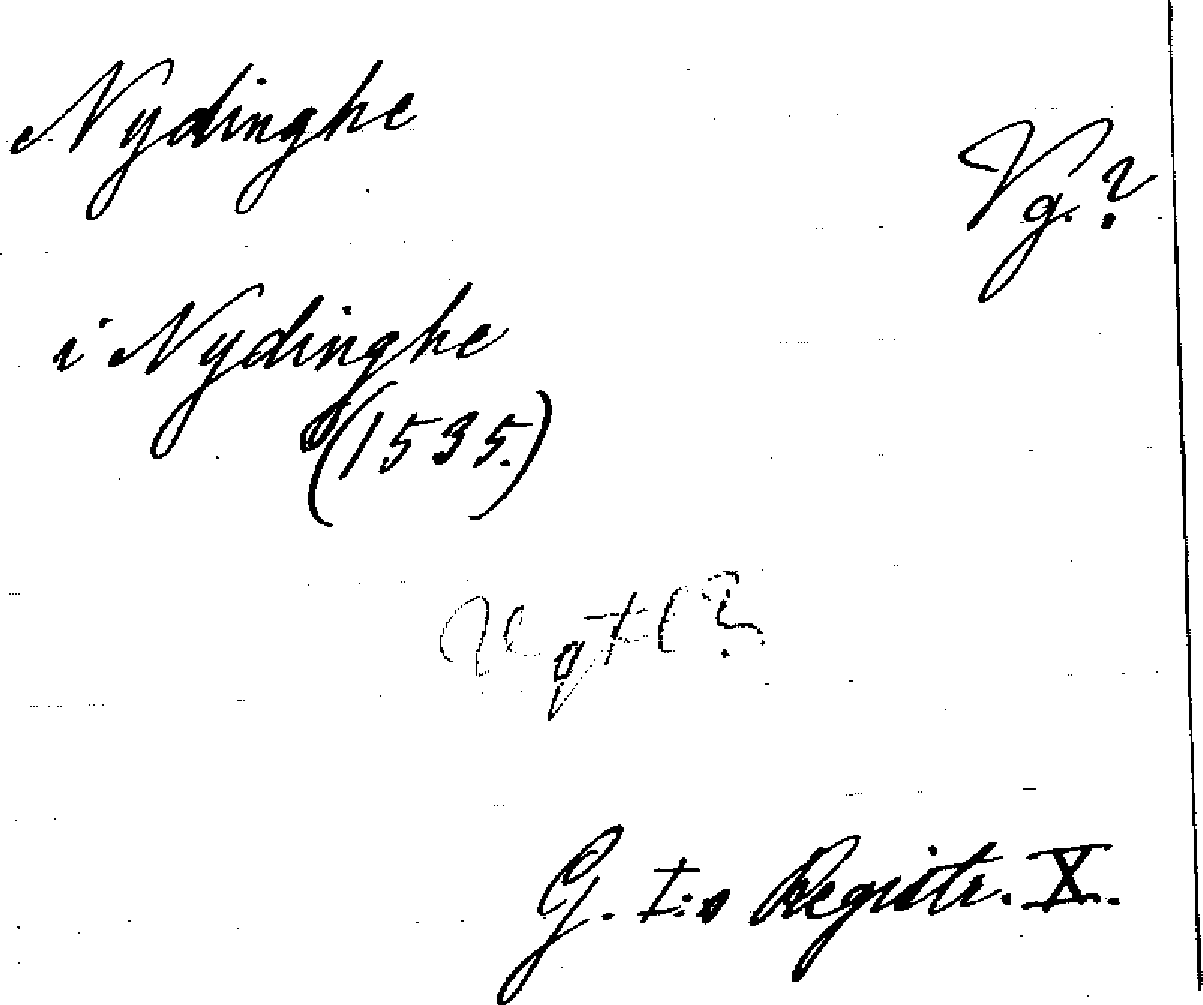 Nydinghe
Vg.?
i Nydinghe
(1535.)
G. I:s Registr. X.